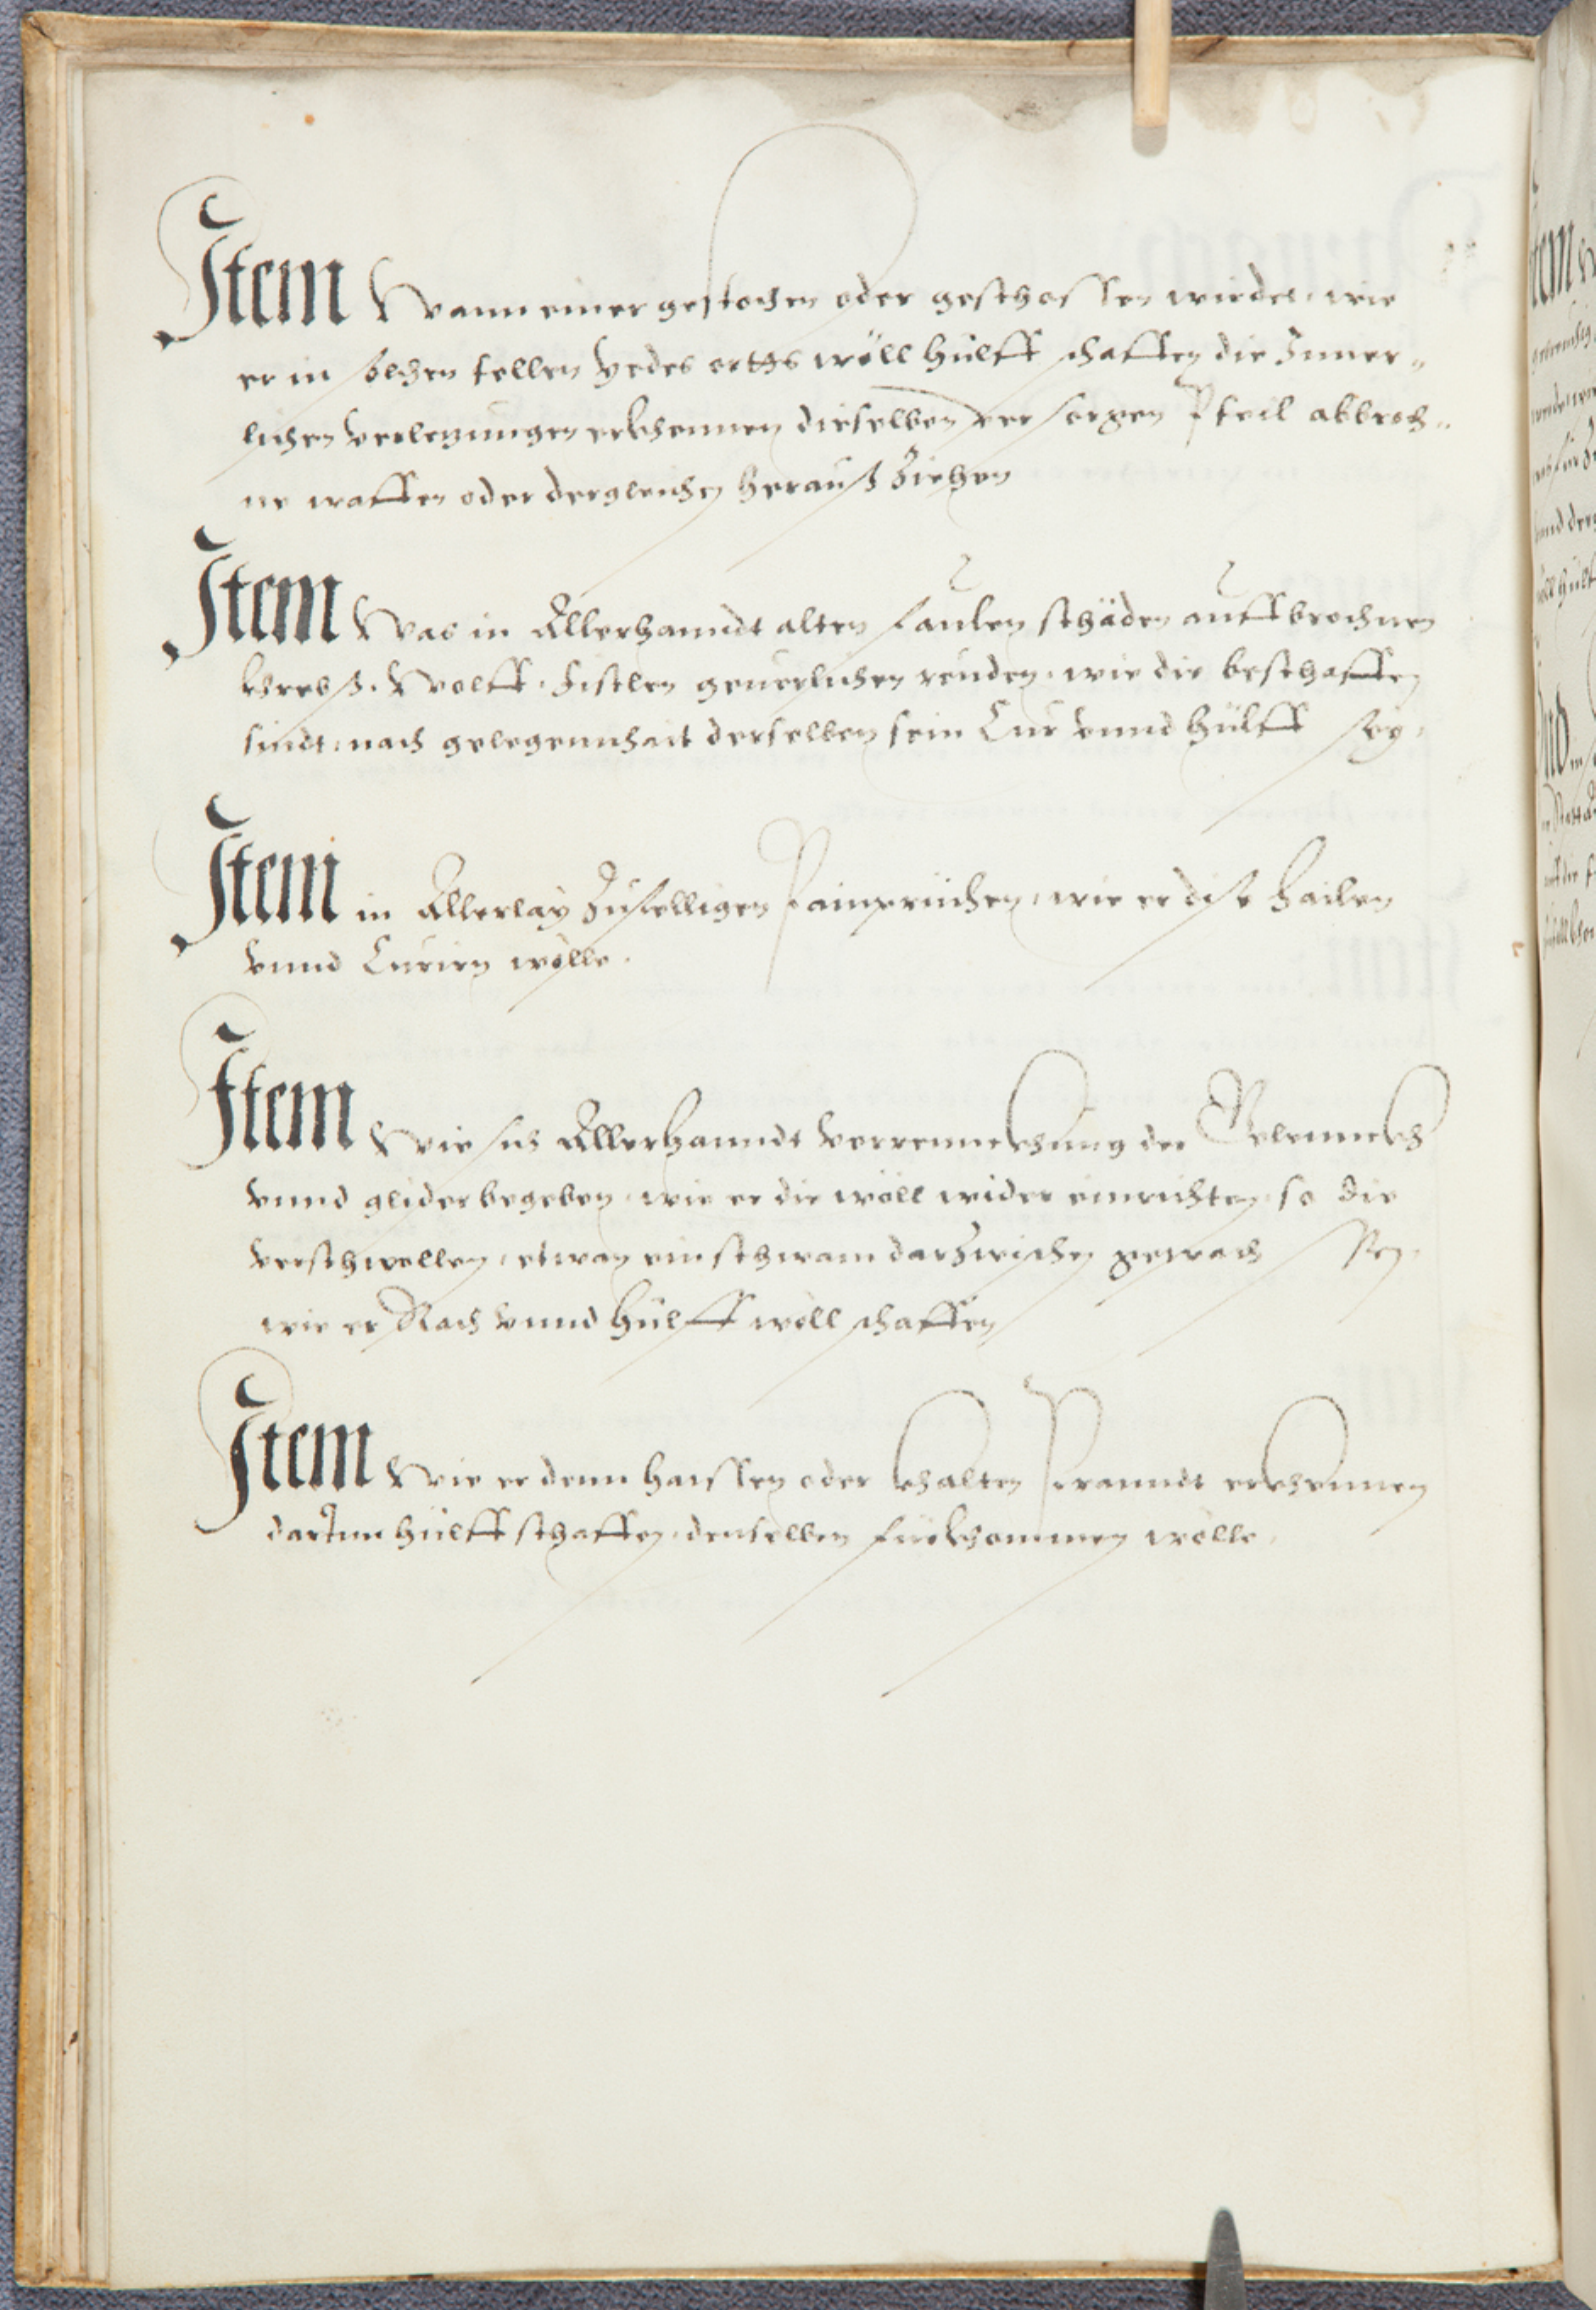 Item Wann einer gestochen oder geschossen wirdet, wie
er in solchen fellen Yedes ortts wöll hülff schaffen die Inner-
lichen verletzungen erkhennen dieselben versorgen Pfeil abbroch-
ne waffen oder dergleichen heraußziehen
Item Was in Allerhanndt alten faulen schäden auffbrochnen
khrebß. Wolff. Fistlen geuerlichen reüden, wie die beschaffen
sindt, nach gelegennhait derselben sein Cur vnnd hülff sey.
Item in Allerlay Zufelligen Painprüchen, wie er dise hailen
vnnd Curirn wölle.
Item Wie sich Allerhanndt verrennckhung der Gelennckh
vnnd glider begeben, wie er die wöll wider einrichten, so die
verschwellen, etwan ein schwam darzwischen gewachsen,
wie er Rach vnnd hülff wöll schaffen
Item Wie er denn haissen oder khalten Pranndt erkhennen
darInn hülff schaffen, denselben fürkhommen wölle.